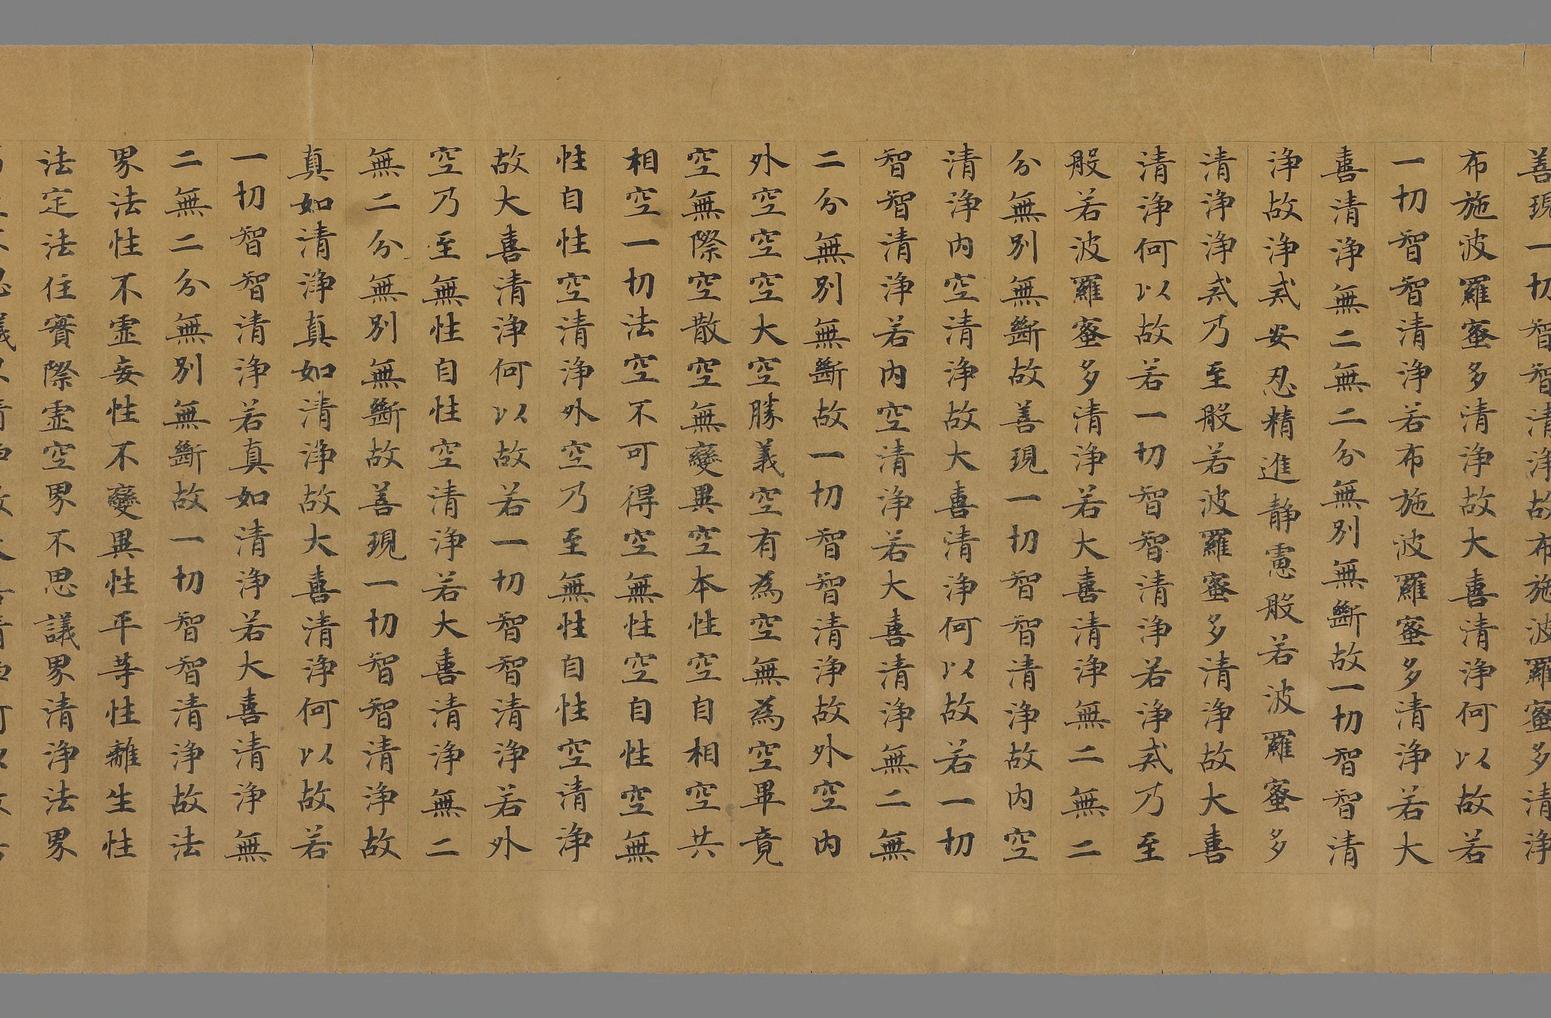 善現一切智智清浄故布施波羅蜜多清浄
布施波羅蜜多清浄故大喜清浄何以故若
一切智智清浄若布施波羅蜜多清浄若大
喜清浄無二無二分無別無斷故一切智智清
浄故浄戒安忍精進静慮般若波羅蜜多
清浄浄戒乃至般若波羅蜜多清浄故大喜
清浄何以故若一切智智清浄若浄戒乃至
般若波羅蜜多清浄若大喜清浄無二無二
分無別無斷故善現一切智智清浄故内空
清浄内空清浄故大喜清浄何以故若一切
智智清浄若内空清浄若大喜清浄無二無
二分無別無斷故一切智智清浄故外空内
外空空空大空勝義空有為空無為空畢竟
空無際空散空無變異空本性空自相空共
相空一切法空不可得空無性空自性空無
性自性空清浄外空乃至無性自性空清浄
故大喜清浄何以故若一切智智清浄若外
空乃至無性自性空清浄若大喜清浄無二
無二分無別無斷故善現一切智智清浄故
真如清浄真如清浄故大喜清浄何以故若
一切智智清浄若真如清浄若大喜清浄無
二無二分無別無斷故一切智智清浄故法
界法性不虛妄性不變異性平等性離生性
法定法住實際虛空界不思議界清浄法界